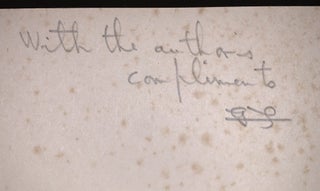 With the author's
compliments